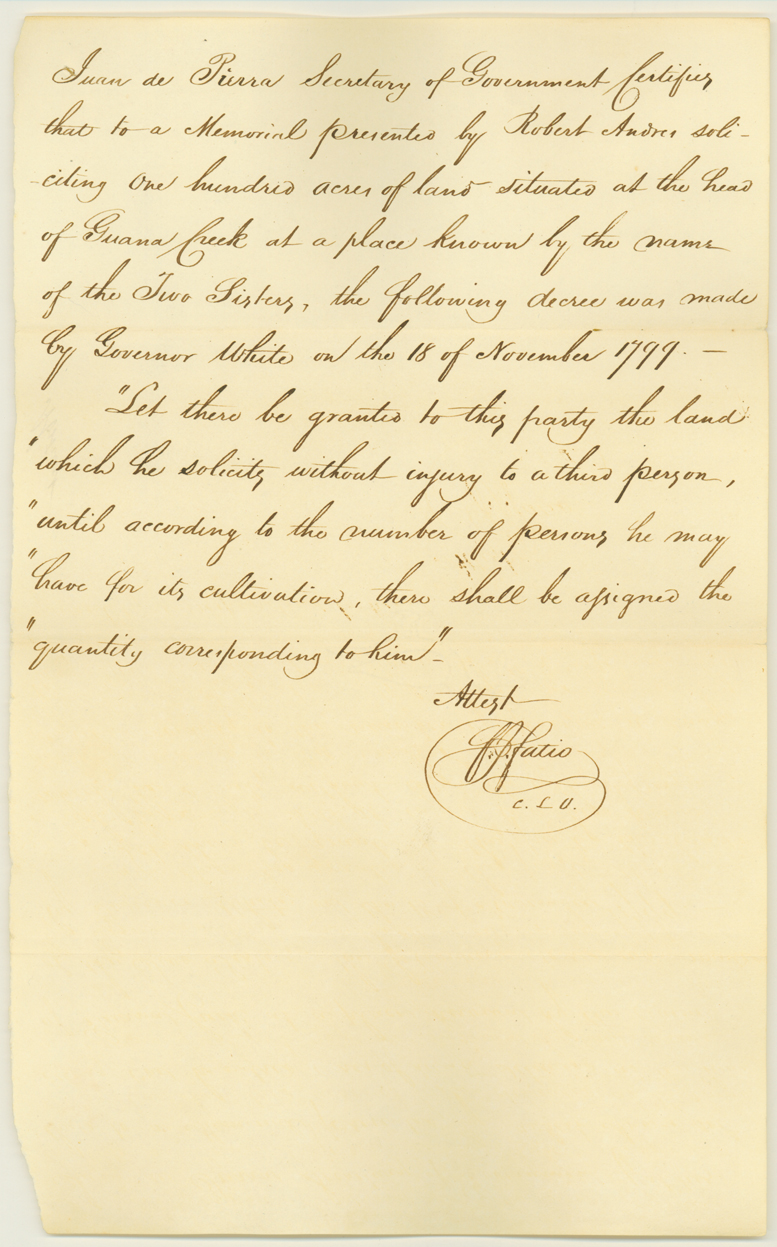 Juan de Pierra Secretary of Government Certifies
that to a Memorial presented by Robert Andres soli-
-citing One hundred acres of land situated at the head
of Guana Creek at a place known by the name
of the Two Sisters, the following decree was made
by Governor White on the 18 of November 1799. —
"Let there be granted to this party the land
"which he solicits without injury to a third person,
"until according to the number of persons he may
"have for its cultivation, there shall be assigned the
"quantity corresponding to him" –
Attest
F. J. Fatio
C. L. O.